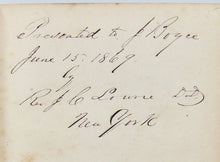 Presented to J Boyce
June 15. 1869
by
Rev J C Lowrie D.D
New York